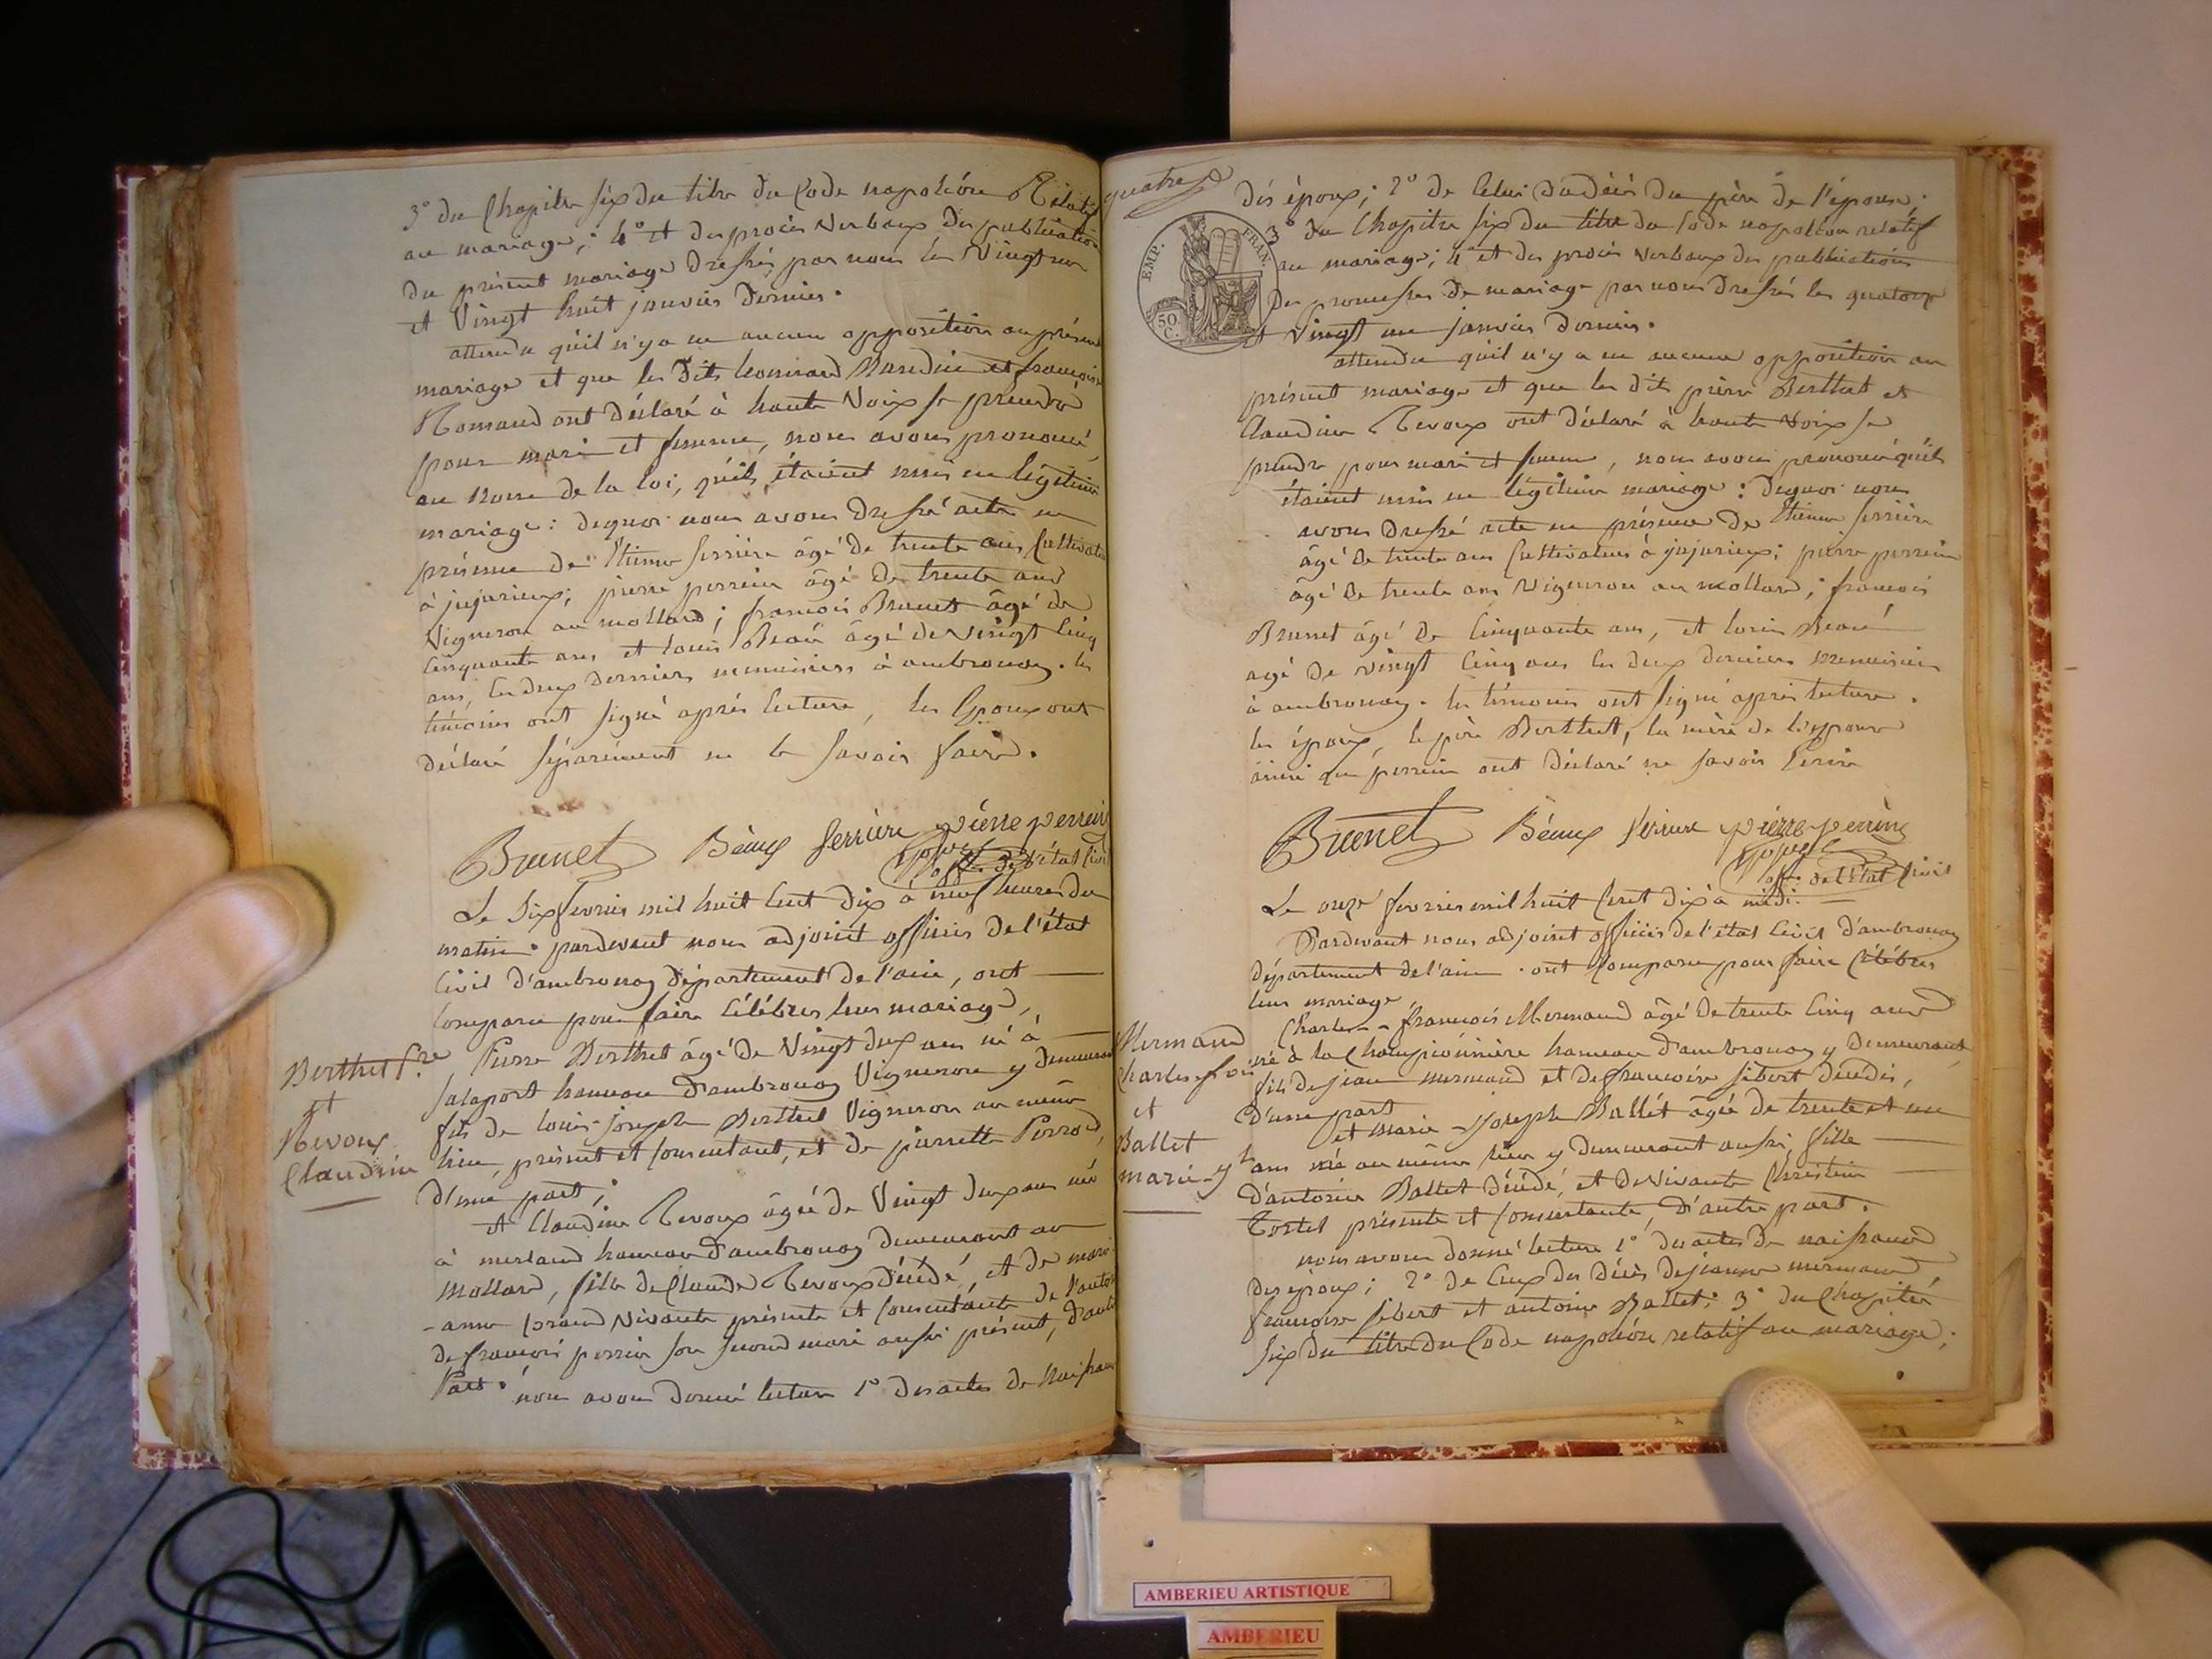 3° du Chapitre six du titre du Code napoléon Relatif
au mariage; 4° et des procès Verbaux des publications
du présent mariage dressés par nous les Vingt un
et Vingt huit janvier dernier.
attendu qu'il n'y a eu aucune opposition au présent
mariage et que les dits Baudin et françoise
Romand ont déclaré à haute Voix se prendre
pour mari et femme, nous avons prononcé,
au nom de la loi, qu'ils étaient unis en légitime
mariage: dequoi nous avons dressé acte en
présence de Etienne ferrière âgé de trente ans Cultivateur
à jujurieux; pierre perrein âgé de trente ans
Vigneron au mollard; francois Brunet âgé de
Cinquante ans et louis Beau âgé de vingt Cinq
ans, les deux derniers menuisiers à ambronay. les
témoins ont signé après lecture, les Epoux ont
déclaré séparément ne le savoir faire.
Brunet Béaux ferriere pièrre perrein
off. de l'état Civil
Le Six fevrier mil huit Cent dix à neuf heures du
matin. pardevant nous adjoint officier de l'état
Civil d'ambronay département de l'ain, ont
Comparu pour faire Célébrer leur mariage,
Berthet P.re
et
Revoux
Claudine
Pierre Berthet âgé de Vingt deux ans né à
Salaport hameau d'ambronay Vigneron y demeurant
fils de louis-joseph Berthet Vigneron au même
lieu, présent et Consentant, et de pierrette Perrod,
d'une part;
et Claudine Revoux âgée de Vingt deux ans née
à merland hameau d'ambronay demeurant au
Mollard, fille de Claude Revoux décédé, et de marie
-anne Vivante présente et Consentante de l'autorité
de francois perrin son second mari aussi présent, d'autre
Part.
nous avons donné lecture 1° des actes de Naissance
quatre
des époux; 2° de Celui du décès du père de l'épouse;
EMP. FRAN.
50 C.
3° du Chapitre six du titre du Code napoléon relatif
au mariage; 4° et des procès Verbaux des publications
des promesses de mariage par nous dressés les quatorze
et Vingt un janvier dernier.
attendu qu'il n'y a eu aucune opposition au
présent mariage et que les dits pierre Berthet et
Claudine Revoux ont déclaré à haute Voix se
prendre pour mari et femme, nous avons prononcé qu'ils
étaient unis en légitime mariage: dequoi nous
avons dressé acte en présence de Etienne ferrière
âgé de trente ans Cultivateur à jujurieux; pierre perrein
âgé de trente ans Vigneron au mollard; francois
Brunet âgé de Cinquante ans, et louis Beau
agé de vingt Cinq ans les deux derniers menuisiers
à ambronay. les témoins ont signé après lecture.
les époux, le père Berthet, la mère de l'épouse
ainsi que perrein ont déclaré ne savoir Ecrire
Brunet Béaux ferriere pièrre perrein
off. de l'état Civil
Le onze fevrier mil huit Cent dix à midi.
Pardevant nous adjoint officier de l'état Civil d'ambronay
département de l'ain. ont Comparu pour faire Célébrer
leur mariage,
Mermand
Charles-f.ois
et
Ballet
marie-j.h
Charles-françois Mermand âgé de trente Cinq ans
né à la Championnière hameau d'ambronay y demeurant
fils de jean mermand et de françoise sibert décédés,
d'une part
et Marie-Joseph Ballét âgée de trente et un
ans née au même lieu y demeurant aussi, fille
d'antoine Ballet décédé, et de Vivante Christine
Tortel présente et Consentante, d'autre part.
nous avons donné lecture 1° des actes de naissance
des époux; 2° de Ceux des décès de jean mermand
françoise sibert et antoine Ballet; 3° du Chapitre
six du titre du Code napoléon relatif au mariage;
AMBERIEU ARTISTIQUE
AMBERIEU